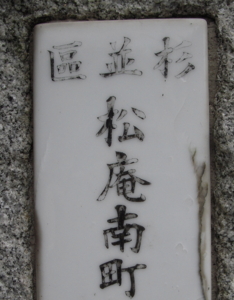 杉並區
松庵南町